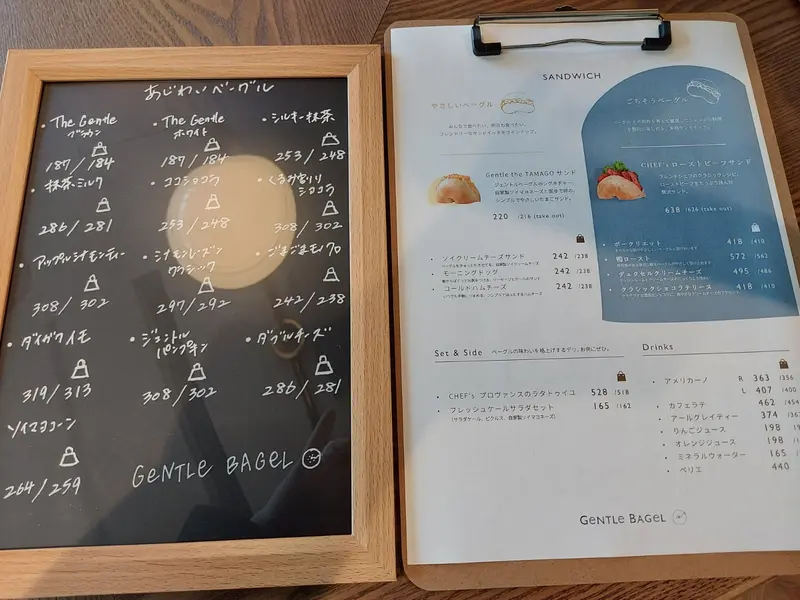 あじわいベーグル
・The Gentle
プラウン
187/184
・The Gentle
ホワイト
187/184
・シルキー抹茶
253/248
・抹茶ミルク
286/281
・ココショコラ
253/248
・くるみ宝り
308/302
・アップルシナモンティー
308/302
・シナモンレーズン
クラシック
297/292
・ごまごまモノクロ
242/238
・ダイガクイモ
319/313
・ジェントル
パンプキン
308/302
・ダブルチーズ
286/281
ソイマヨコーン
264/259
GENTLE BAGEL
SANDWICH
やさしいベーグル
みんなで食べたい、毎日も食べたい。
Gentle the TAMAGO サンド
シンプルでやさしいたまごサンド。
220 /216 (take out)
・ソイクリームチーズサンド 242 /238
・モーニングドッグ 242 /238
・コールドハムチーズ 242 /238
ごちそうベーグル
CHEF'sローストビーフサンド
638 /626 (take out)
・ポークリエット 418 /410
・鴨ロースト 572 /562
・デュクセルクリームチーズ 495 /486
・クラシックショコラテリーヌ 418 /410
Set & Side ベーグルの味わいを格上げするデリ、お供にぜひ。
・CHEF's プロヴァンスのラタトゥイユ 528 /518
・フレッシュケールサラダセット 165 /162
(サラダケール、ピクルス、自家製ソイマヨネーズ)
Drinks
・アメリカーノ R 363 /356
L 407 /400
・カフェラテ 462 /454
・アールグレイティー 374 /367
・りんごジュース 198
・オレンジジュース 198
・ミネラルウォーター 165
・ペリエ 440
GENTLE BAGEL